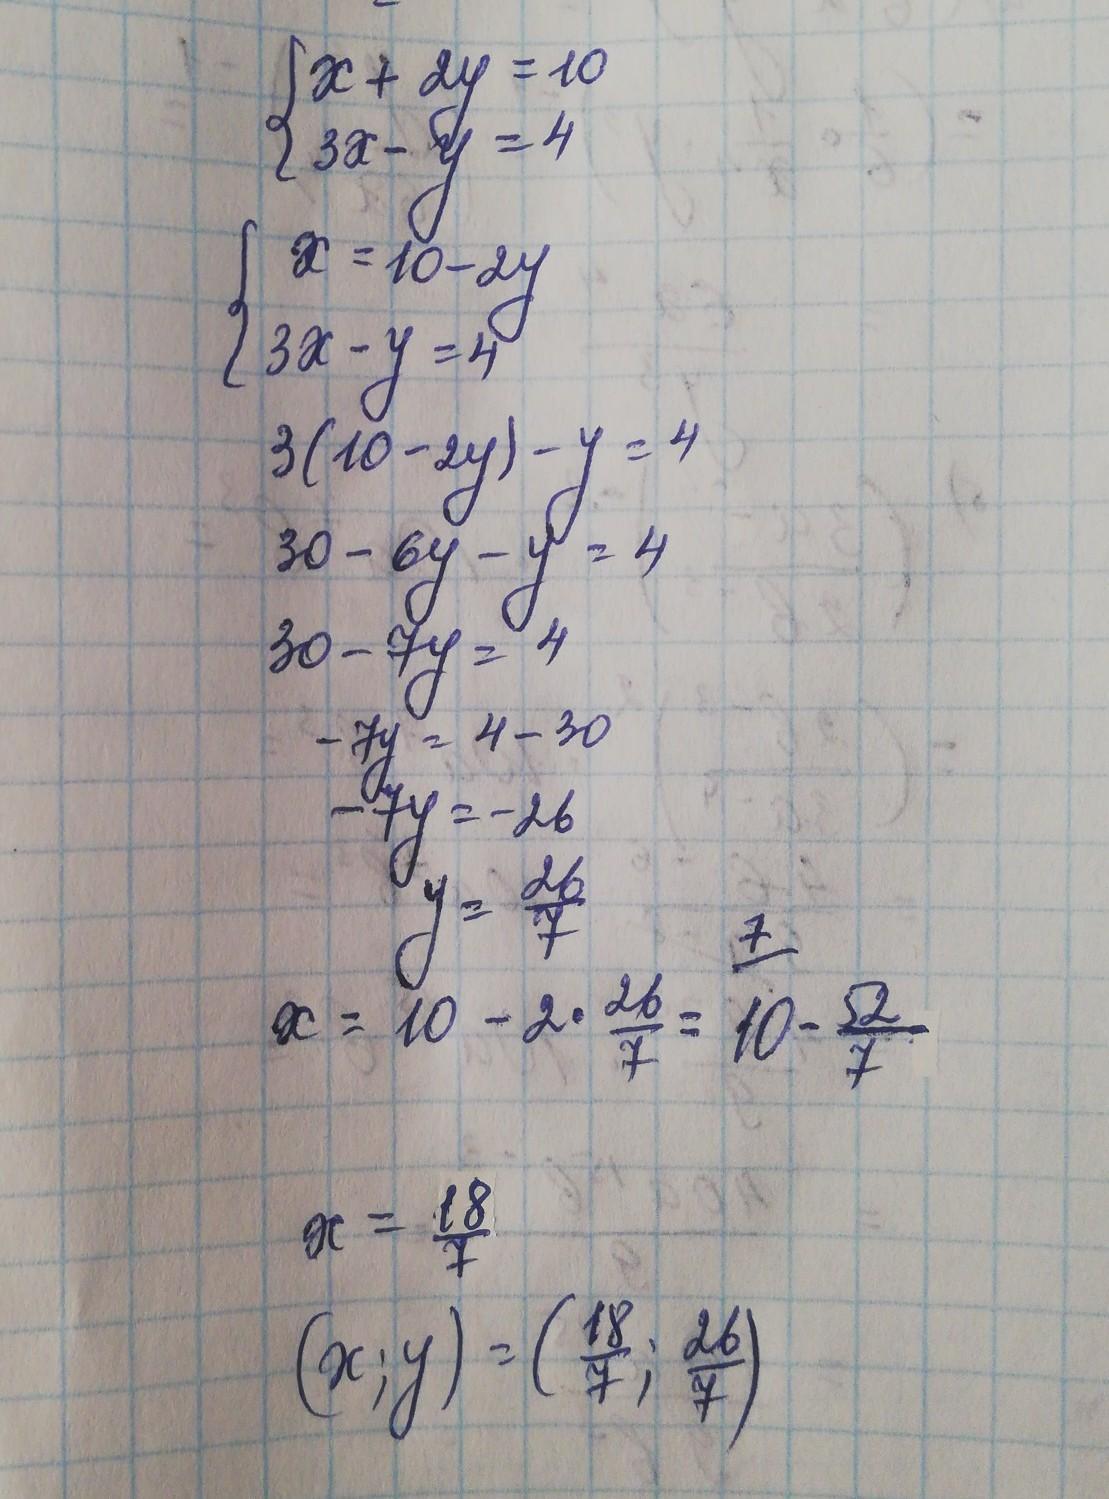 {x + 2y = 10
3x - y = 4
{x = 10 - 2y
3x - y = 4
3(10 - 2y) - y = 4
30 - 6y - y = 4
30 - 7y = 4
-7y = 4 - 30
-7y = -26
y = 26/7
7
x = 10 - 2 · 26/7 = 10 - 52/7
x = 18/7
(x; y) = (18/7; 26/7)